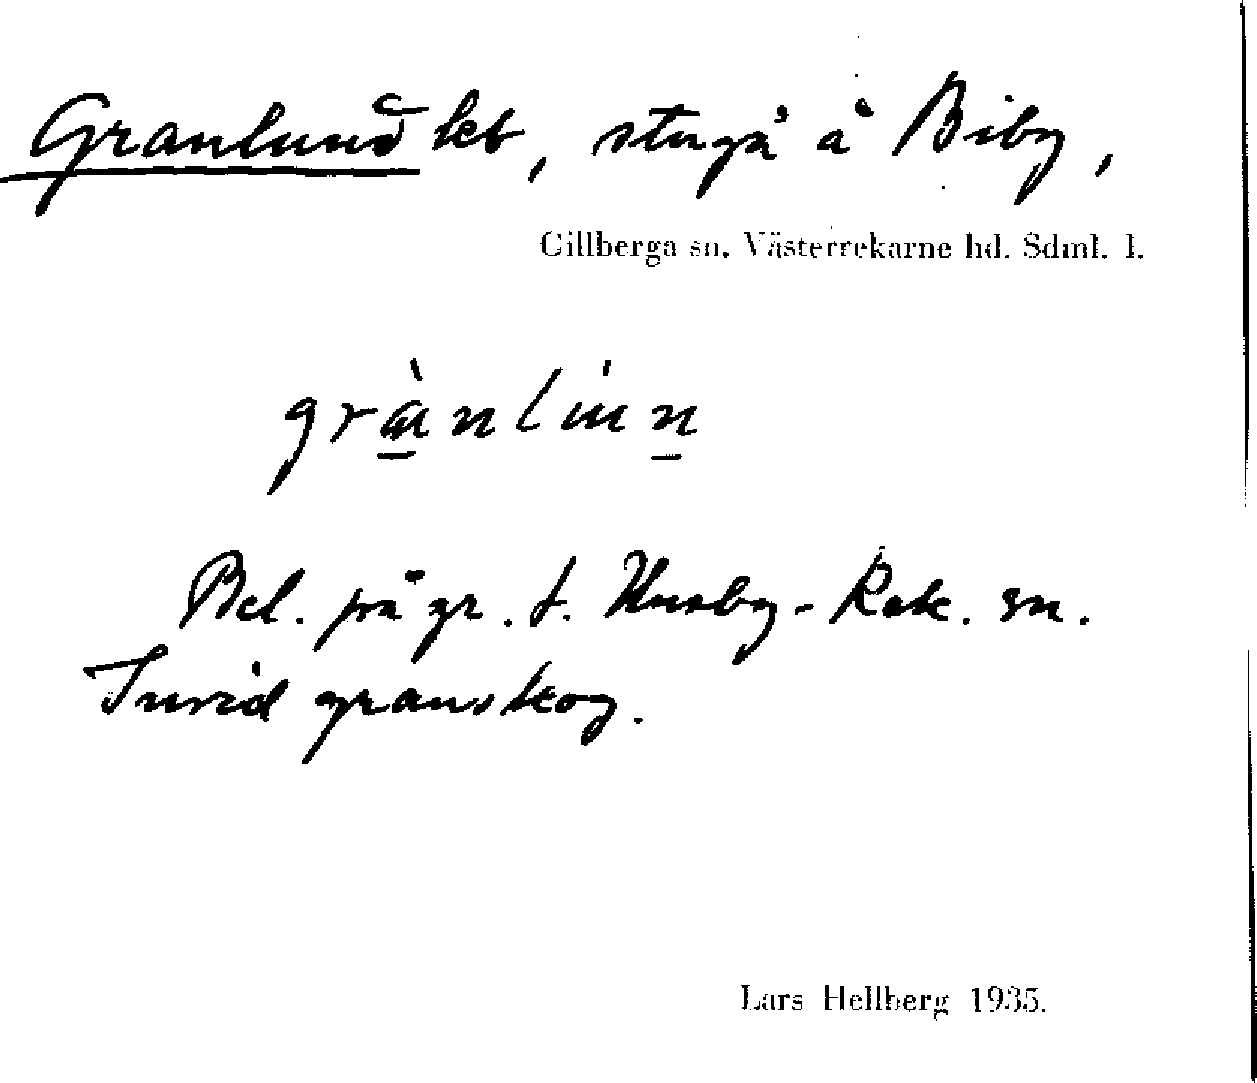 Granlund kb, stuga å Biby,
Gillberga sn. Västerrekarne hd. Sdml. l.
grànlun
Bel. på gr. t. Husby-Rek. sn.
Invid granskog.
Lars Hellberg 1935.